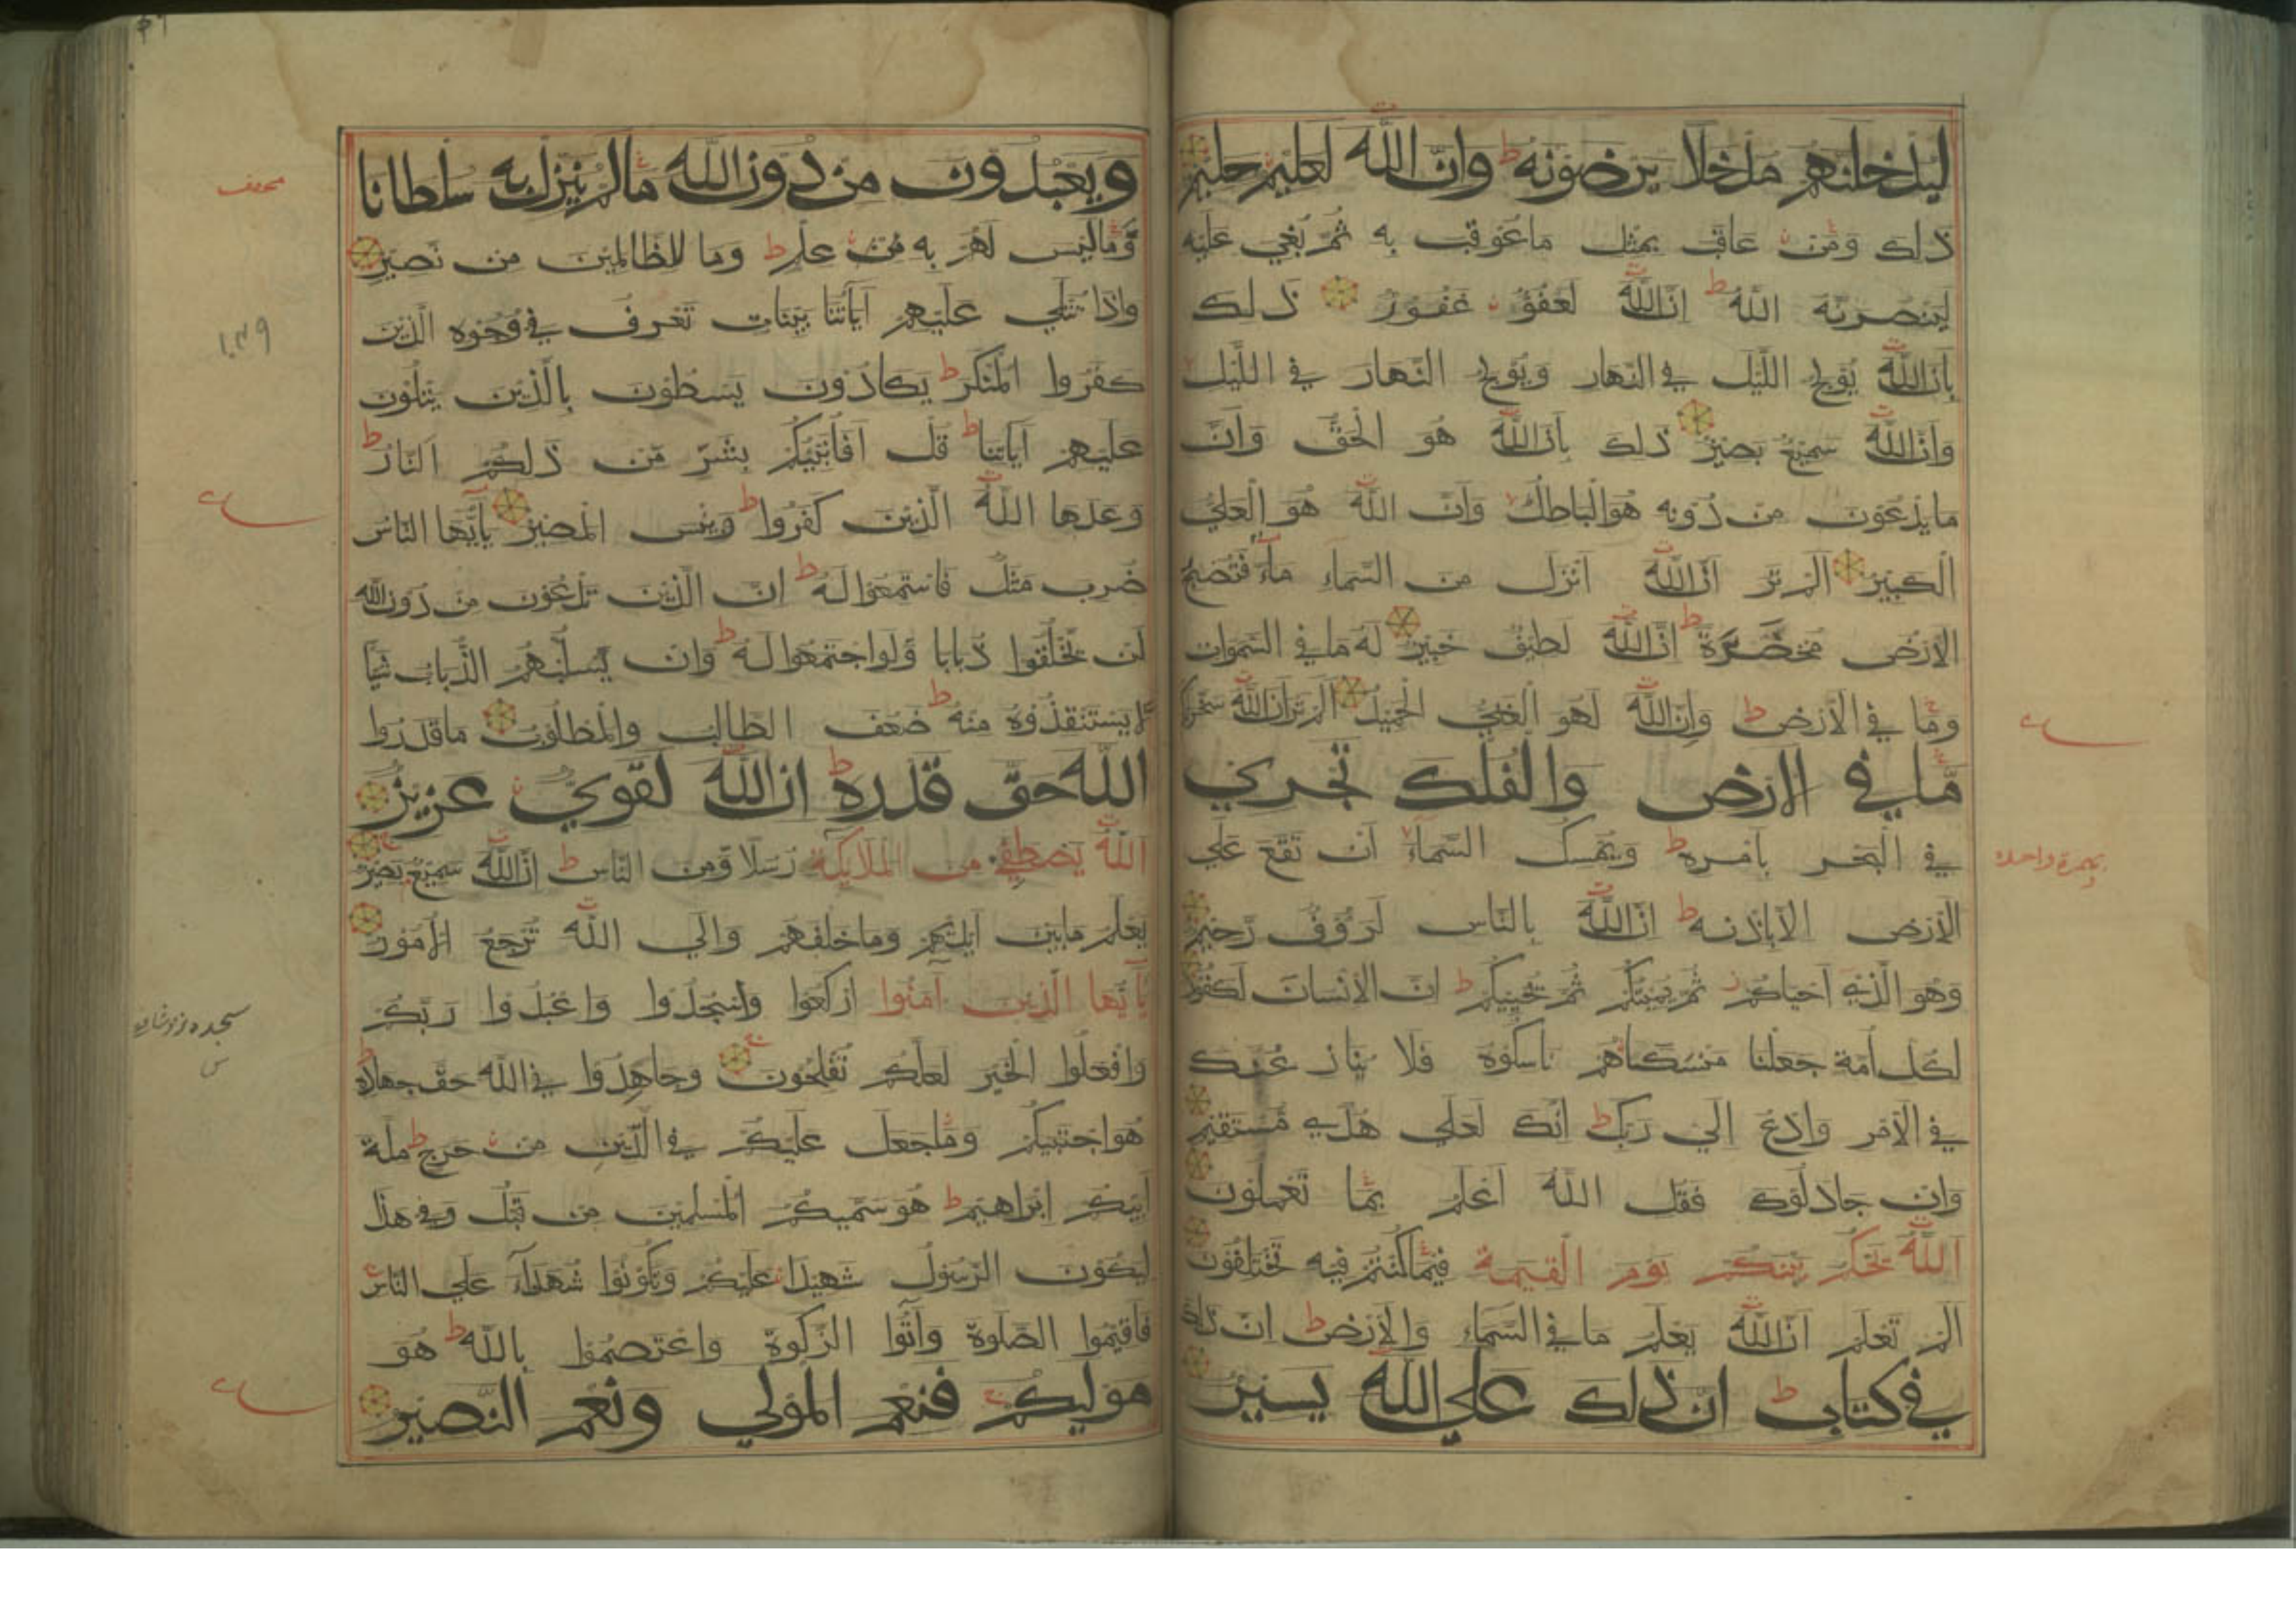 ليدخلنهم مدخلا يرضونه ط وان الله لعليم حليم
ذلك ومن عاقب بمثل ما عوقب به ثم بغي عليه
لينصرنه الله ط ان الله لعفو غفور ذلك
بان الله يولج الليل في النهار ويولج النهار في الليل
وان الله سميع بصير ذلك بان الله هو الحق وان
ما يدعون من دونه هو الباطل وان الله هو العلي
الكبير الم تر ان الله انزل من السماء ماء فتصبح
الارض مخضرة ط ان الله لطيف خبير له ما في السموات
وما في الارض ط وان الله لهو الغني الحميد الم تر ان الله سخر لكم
ما في الارض والفلك تجري
في البحر بامره ط ويمسك السماء ان تقع علي
الارض الا باذنه ط ان الله بالناس لرؤوف رحيم
وهو الذي احياكم ثم يميتكم ثم يحييكم ط ان الانسان لكفور
لكل امة جعلنا منسكا هم ناسكوه فلا ينازعنك
في الامر وادع الي ربك ط انك لعلي هدي مستقيم
وان جادلوك فقل الله اعلم بما تعملون
الله يحكم بينكم يوم القيمة فيما كنتم فيه تختلفون
الم تعلم ان الله يعلم ما في السماء والارض ط ان ذلك
في كتاب ط ان ذلك علي الله يسير
بهمزة واحدة
ويعبدون من دون الله ما لم ينزل به سلطانا
وما ليس لهم به من علم ط وما للظالمين من نصير
واذا تتلي عليهم اياتنا بينات تعرف في وجوه الذين
كفروا المنكر ط يكادون يسطون بالذين يتلون
عليهم اياتنا ط قل افانبئكم بشر من ذلكم النار ط
وعدها الله الذين كفروا ط وبئس المصير يا ايها الناس
ضرب مثل فاستمعوا له ط ان الذين تدعون من دون الله
لن يخلقوا ذبابا ولو اجتمعوا له ط وان يسلبهم الذباب شيئا
لا يستنقذوه منه ط ضعف الطالب والمطلوب ما قدروا
الله حق قدره ط ان الله لقوي عزيز
الله يصطفي من الملايكة رسلا ومن الناس ط ان الله سميع بصير
يعلم ما بين ايديهم وما خلفهم والي الله ترجع الامور
يا ايها الذين آمنوا اركعوا واسجدوا واعبدوا ربكم
وافعلوا الخير لعلكم تفلحون وجاهدوا في الله حق جهاده
هو اجتبيكم وما جعل عليكم في الدين من حرج ط ملة
ابيكم ابراهيم ط هو سميكم المسلمين من قبل وفي هذا
ليكون الرسول شهيدا عليكم وتكونوا شهدآء علي الناس
فاقيموا الصلوة وآتوا الزكوة واعتصموا بالله ط هو
موليكم فنعم المولي ونعم النصير
١٠٣٩
سجده